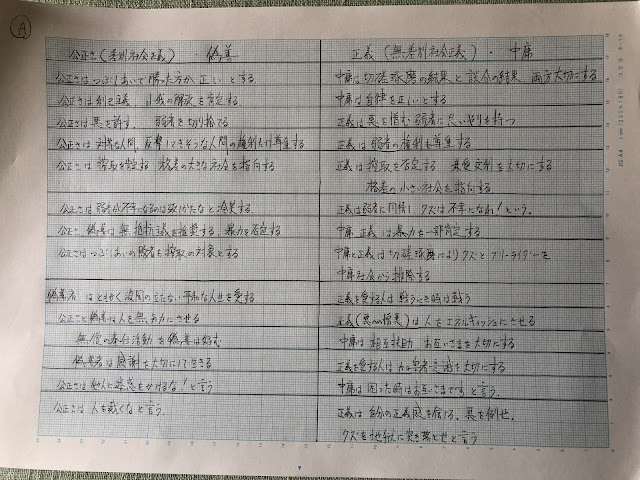 A
公正さ(差別社会正義)・偽善
公正さはつぶしあいで勝った方が正しいとする
公正さは利己主義 小我の解放を肯定する
公正さは悪を許す、弱者を切り捨てる
公正さは 人間、反撃してきそうな人間の権利だけ尊重する
公正さは 搾取を肯定する 格差の大きな社会を指向する
公正さは弱者が不幸になるのは致しかたなしと冷笑する
公正 偽善は無抵抗主義を推奨する、暴力を否定する
公正さはつぶしあいの敗者を搾取の対象とする
偽善者はともかく波風の立たない平和な人生を愛する
公正さと偽善は人を無気力にさせる
無償の奉仕活動を偽善は好む
偽善者は感謝を大切にして生きる
公正さは他人に迷惑をかけるな!と言う
公正さは人を裁くなと言う.
正義(無差別社会正義)・中庸
中庸は切磋琢磨の結果と談合の結果、両方大切にする
中庸は自律を正しいとする
正義は悪を憎む 弱者に思いやりを持つ
正義は弱者の権利も尊重する
正義は搾取を否定する を大切にする
格差の小さい社会を指向する
正義は弱者に同情し クズは不幸になれ!という.
中庸 正義は暴力を一部肯定する
中庸と正義は切磋琢磨によりクズとフリーライダーを
中庸社会から排除する
正義を愛する人は戦うべき時は戦う
正義(悪への憎悪)は人をエネルギッシュにさせる
中庸は相互扶助 お互いさまを大切にする
正義を愛する人は 交流を大切にする
中庸は困った時はお互いさまですと言う.
正義は自分の正義感を信じろ、悪を倒せ.
クズを地獄に突き落とせと言う